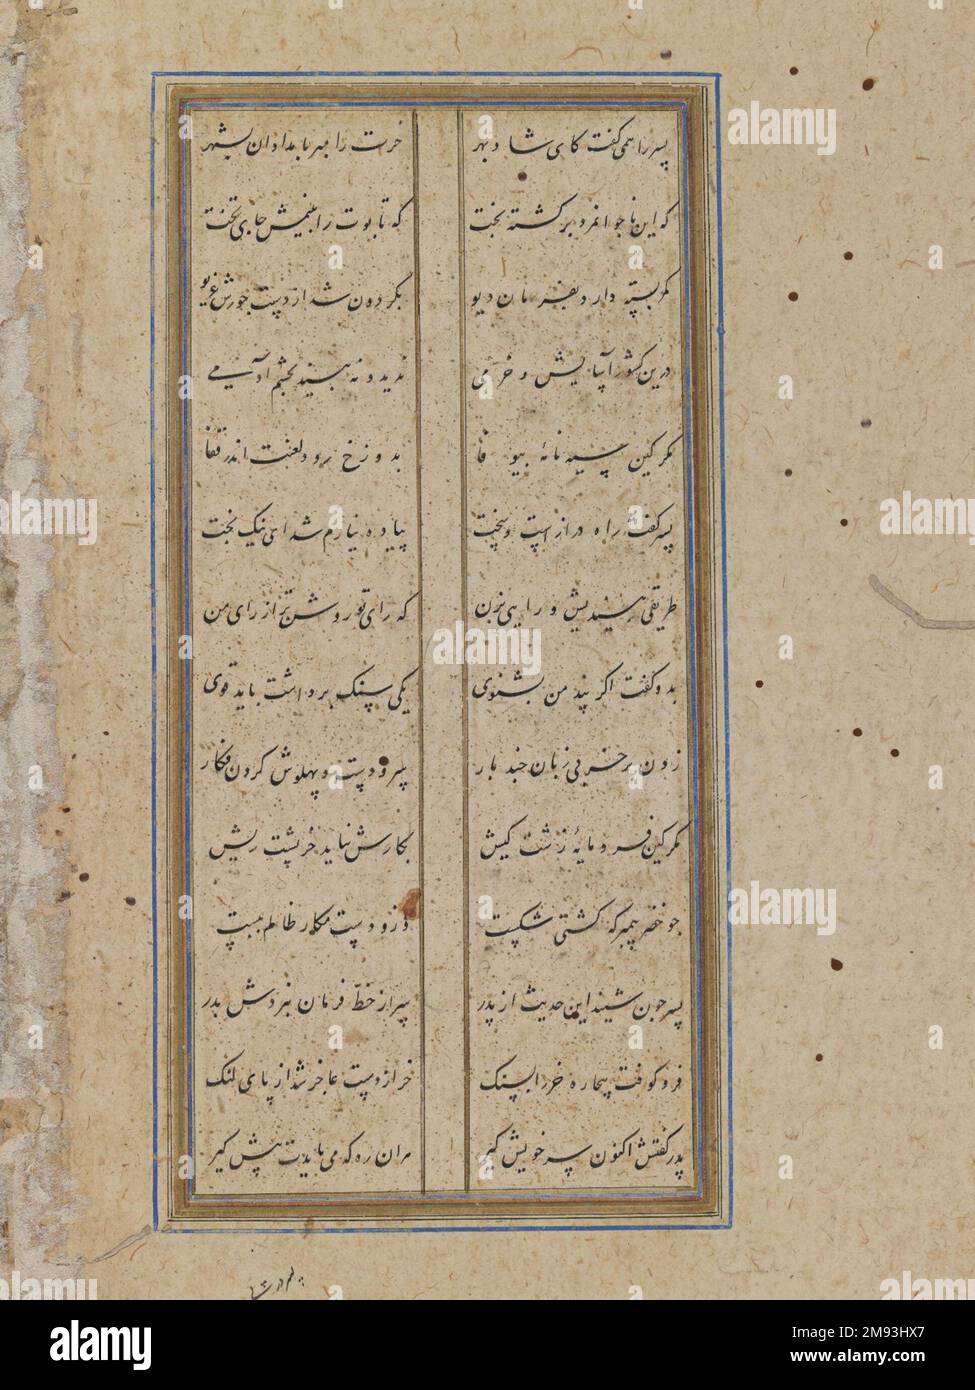 پسر را همی گفت کای شاد بهر
خرت را مبر بامدادان بشهر
که این ناجوانمرد برگشته بخت
که تابوت را بینمش جای تخت
کمر بسته دارد بفرمان دیو
بگردون شد از دست جورش غریو
درین کشور آسایش و خرمی
ندید و نه بیند بچشم آدمی
مگر کین سیه نامهٔ بیوفا
بدوزخ رود لعنت اندر قفا
پسر گفت راه درازست و سخت
پیاده نیارم شد ای نیک بخت
طریقی بیندیش و رایی بزن
که رای تو روشن تر از رای من
بدو گفت اگر پند من بشنوی
یکی سنک برداشت باید قوی
زدن بر خر زبان چند بار
سر و دست و پهلوش کردن فکار
مگر کین فرومایهٔ زشت کیش
بکارش نیاید خر پشت ریش
چو خضر پیمبر که کشتی شکست
وزو دست مکار ظالم ببست
پسر چون شنید این حدیث از پدر
سر از خط فرمان نبردش بدر
فرو کوفت بیچاره خر را بسنک
خر از دست عاجز شد از پای لنک
پدر گفتش اکنون سر خویش گیر
مر آن ره که می بایدت پیش گیر
alamy
Image ID: 2M93HX7
www.alamy.com